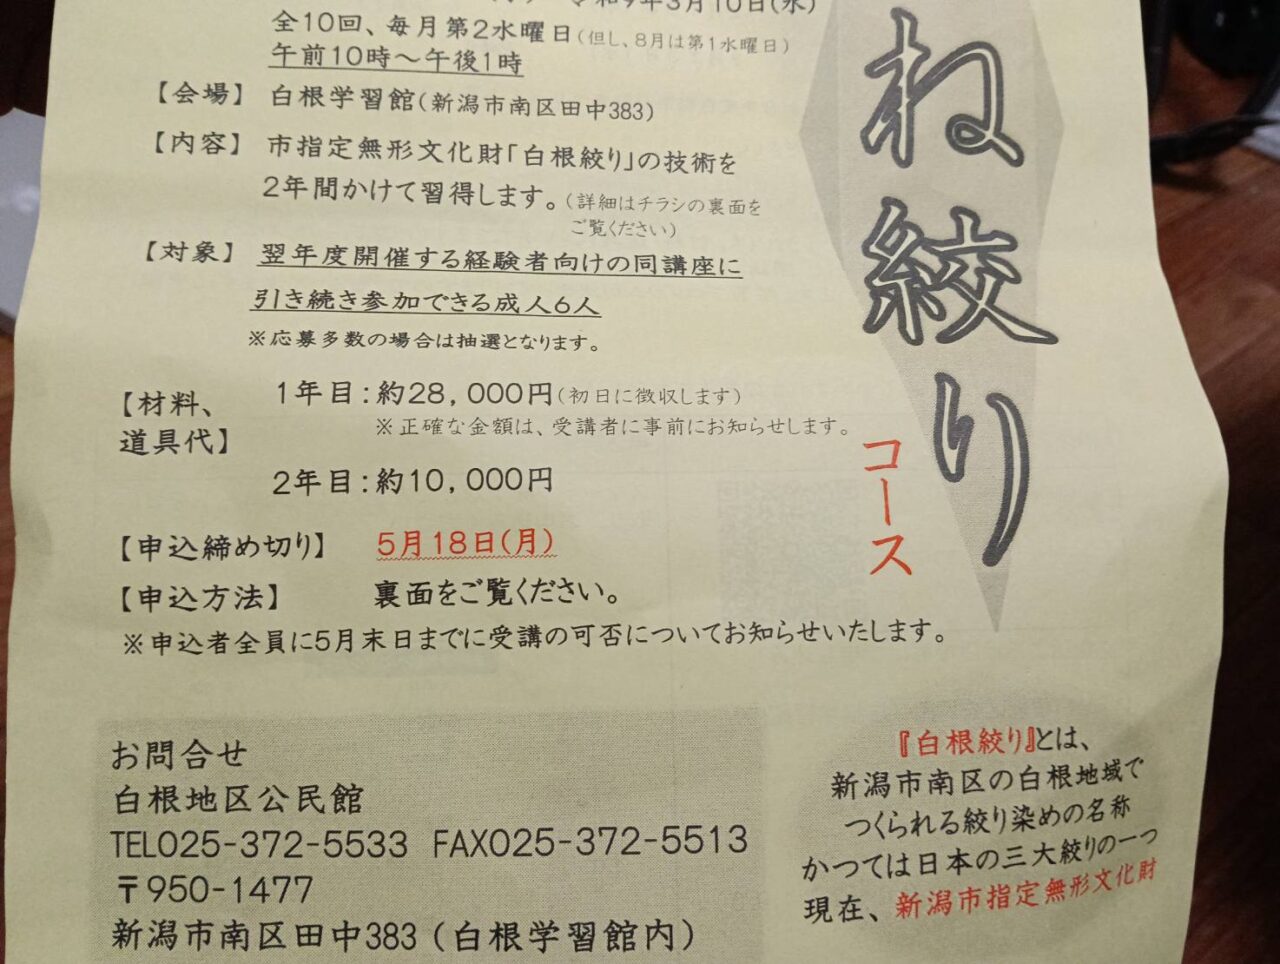 令和9年3月10日(水)
全10回、毎月第2水曜日(但し、8月は第1水曜日)
午前10時～午後1時
【会場】 白根学習館(新潟市南区田中383)
【内容】 市指定無形文化財「白根絞り」の技術を
2年間かけて習得します。(詳細はチラシの裏面を
ご覧ください)
【対象】 翌年度開催する経験者向けの同講座に
引き続き参加できる成人6人
※応募多数の場合は抽選となります。
【材料、
道具代】
1年目：約28,000円(初日に徴収します)
※正確な金額は、受講者に事前にお知らせします。
2年目：約10,000円
【申込締め切り】 5月18日(月)
【申込方法】 裏面をご覧ください。
※申込者全員に5月末日までに受講の可否についてお知らせいたします。
ね絞り
コース
お問合せ
白根地区公民館
TEL025-372-5533 FAX025-372-5513
〒950-1477
新潟市南区田中383（白根学習館内）
『白根絞り』とは、
新潟市南区の白根地域で
つくられる絞り染めの名称
かつては日本の三大絞りの一つ
現在、新潟市指定無形文化財